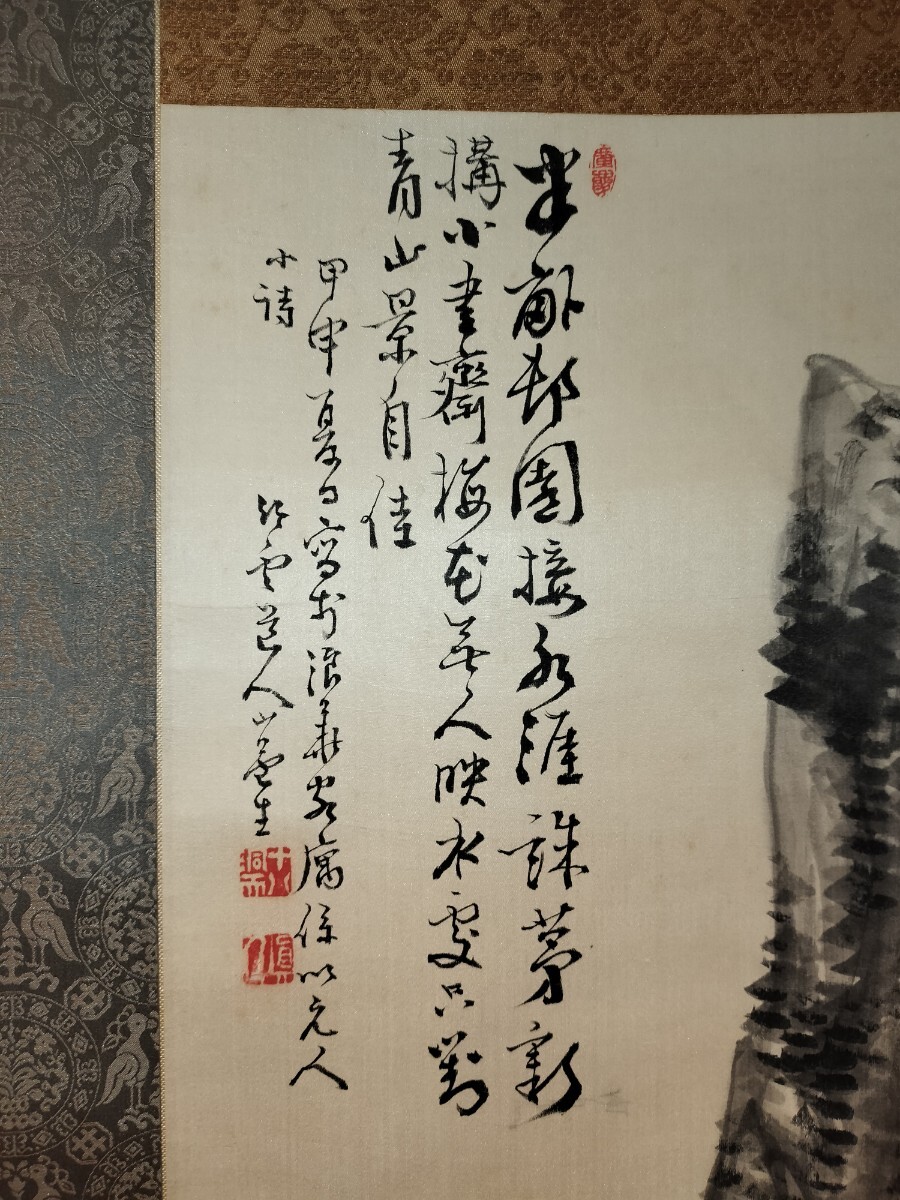 半畝邨園接水涯誅茅新
搆小書齋梅花無人映水處只對
青山景自佳
甲申夏日寫於浪華客寓係以元人
小詩
雲道人山 生